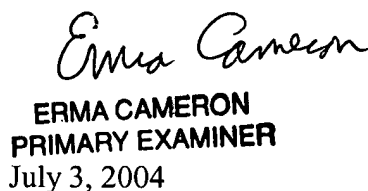 Erma Cameron
ERMA CAMERON
PRIMARY EXAMINER
July 3, 2004